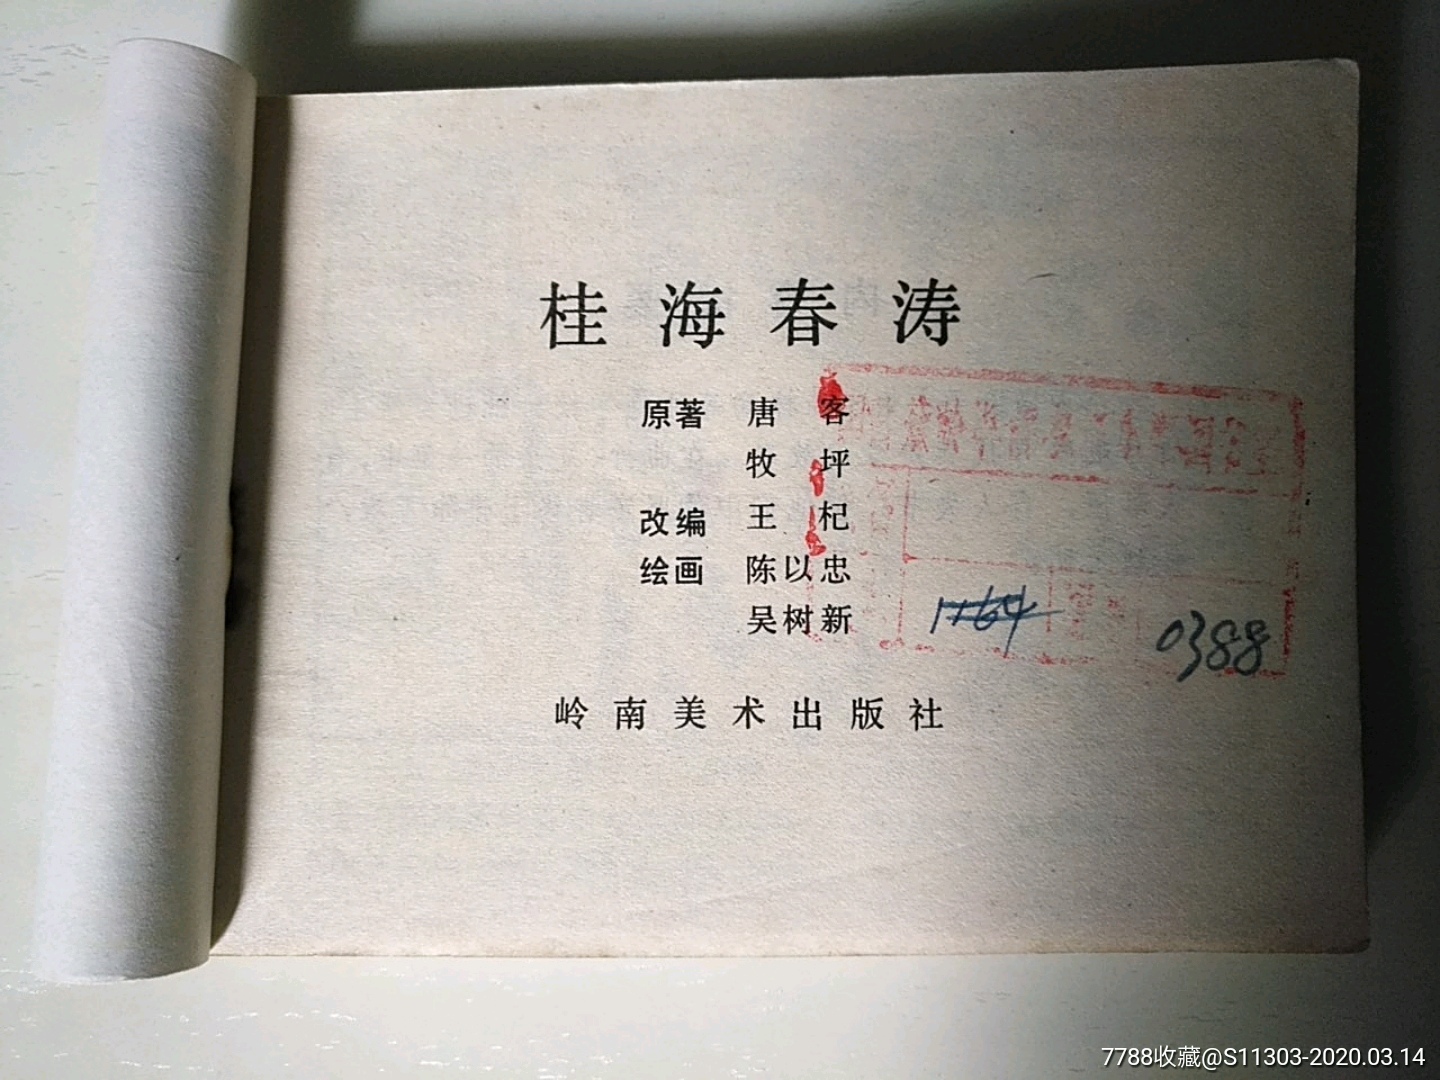 桂海春涛
原著 唐客
牧坪
改编 王杞
绘画 陈以忠
吴树新
1164
0388
岭南美术出版社
7788收藏@S11303-2020.03.14